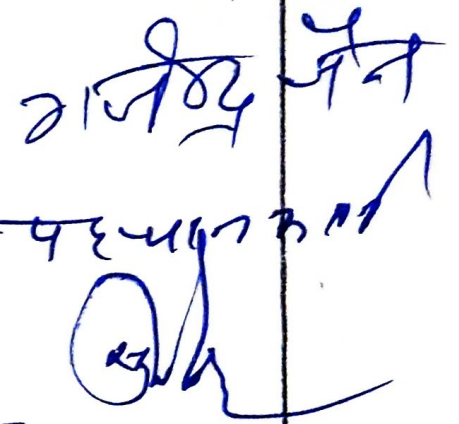 गजेन्द्र जैन
पहचानकर्ता